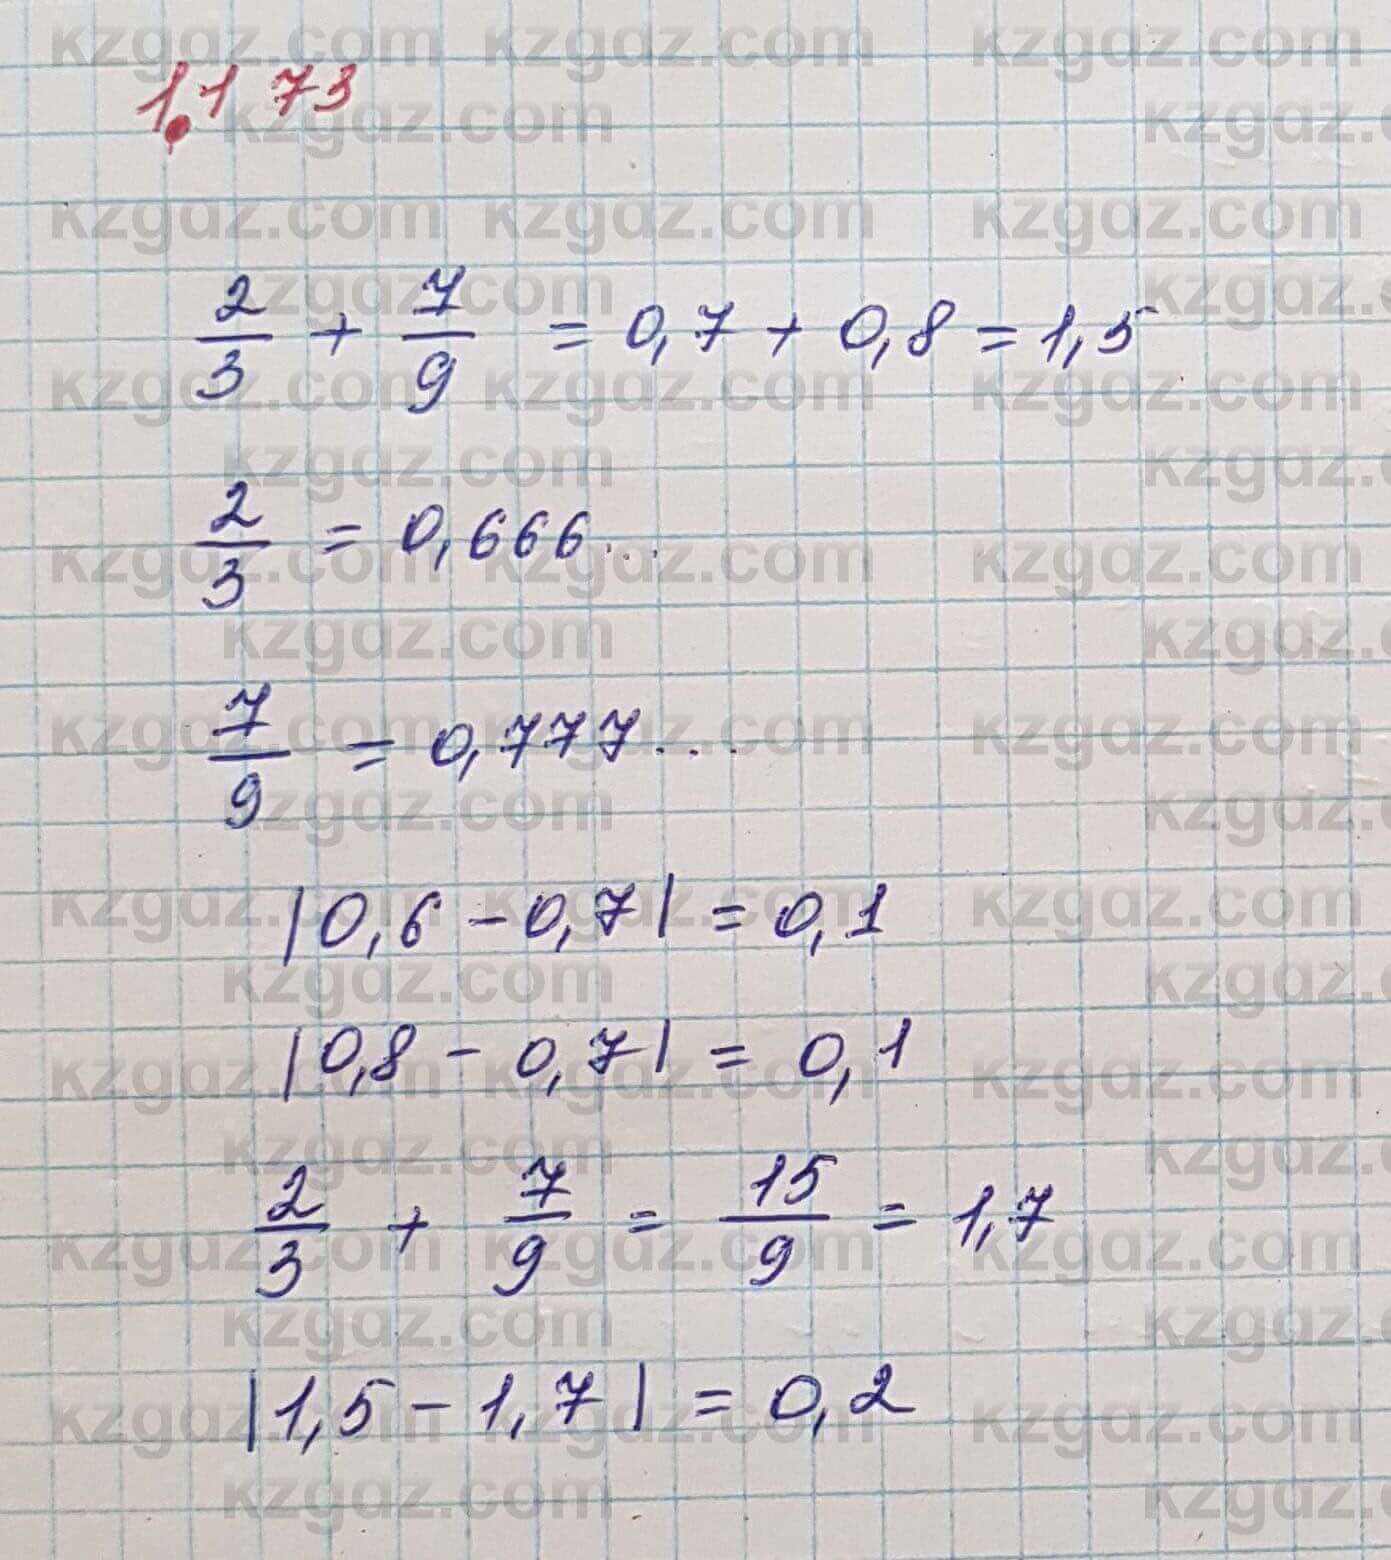 1.173
2/3 + 7/9 = 0,7 + 0,8 = 1,5
2/3 = 0,666...
7/9 = 0,777...
|0,6 - 0,7| = 0,1
|0,8 - 0,7| = 0,1
2/3 + 7/9 = 15/9 = 1,7
|1,5 - 1,7| = 0,2
kzgaz.com